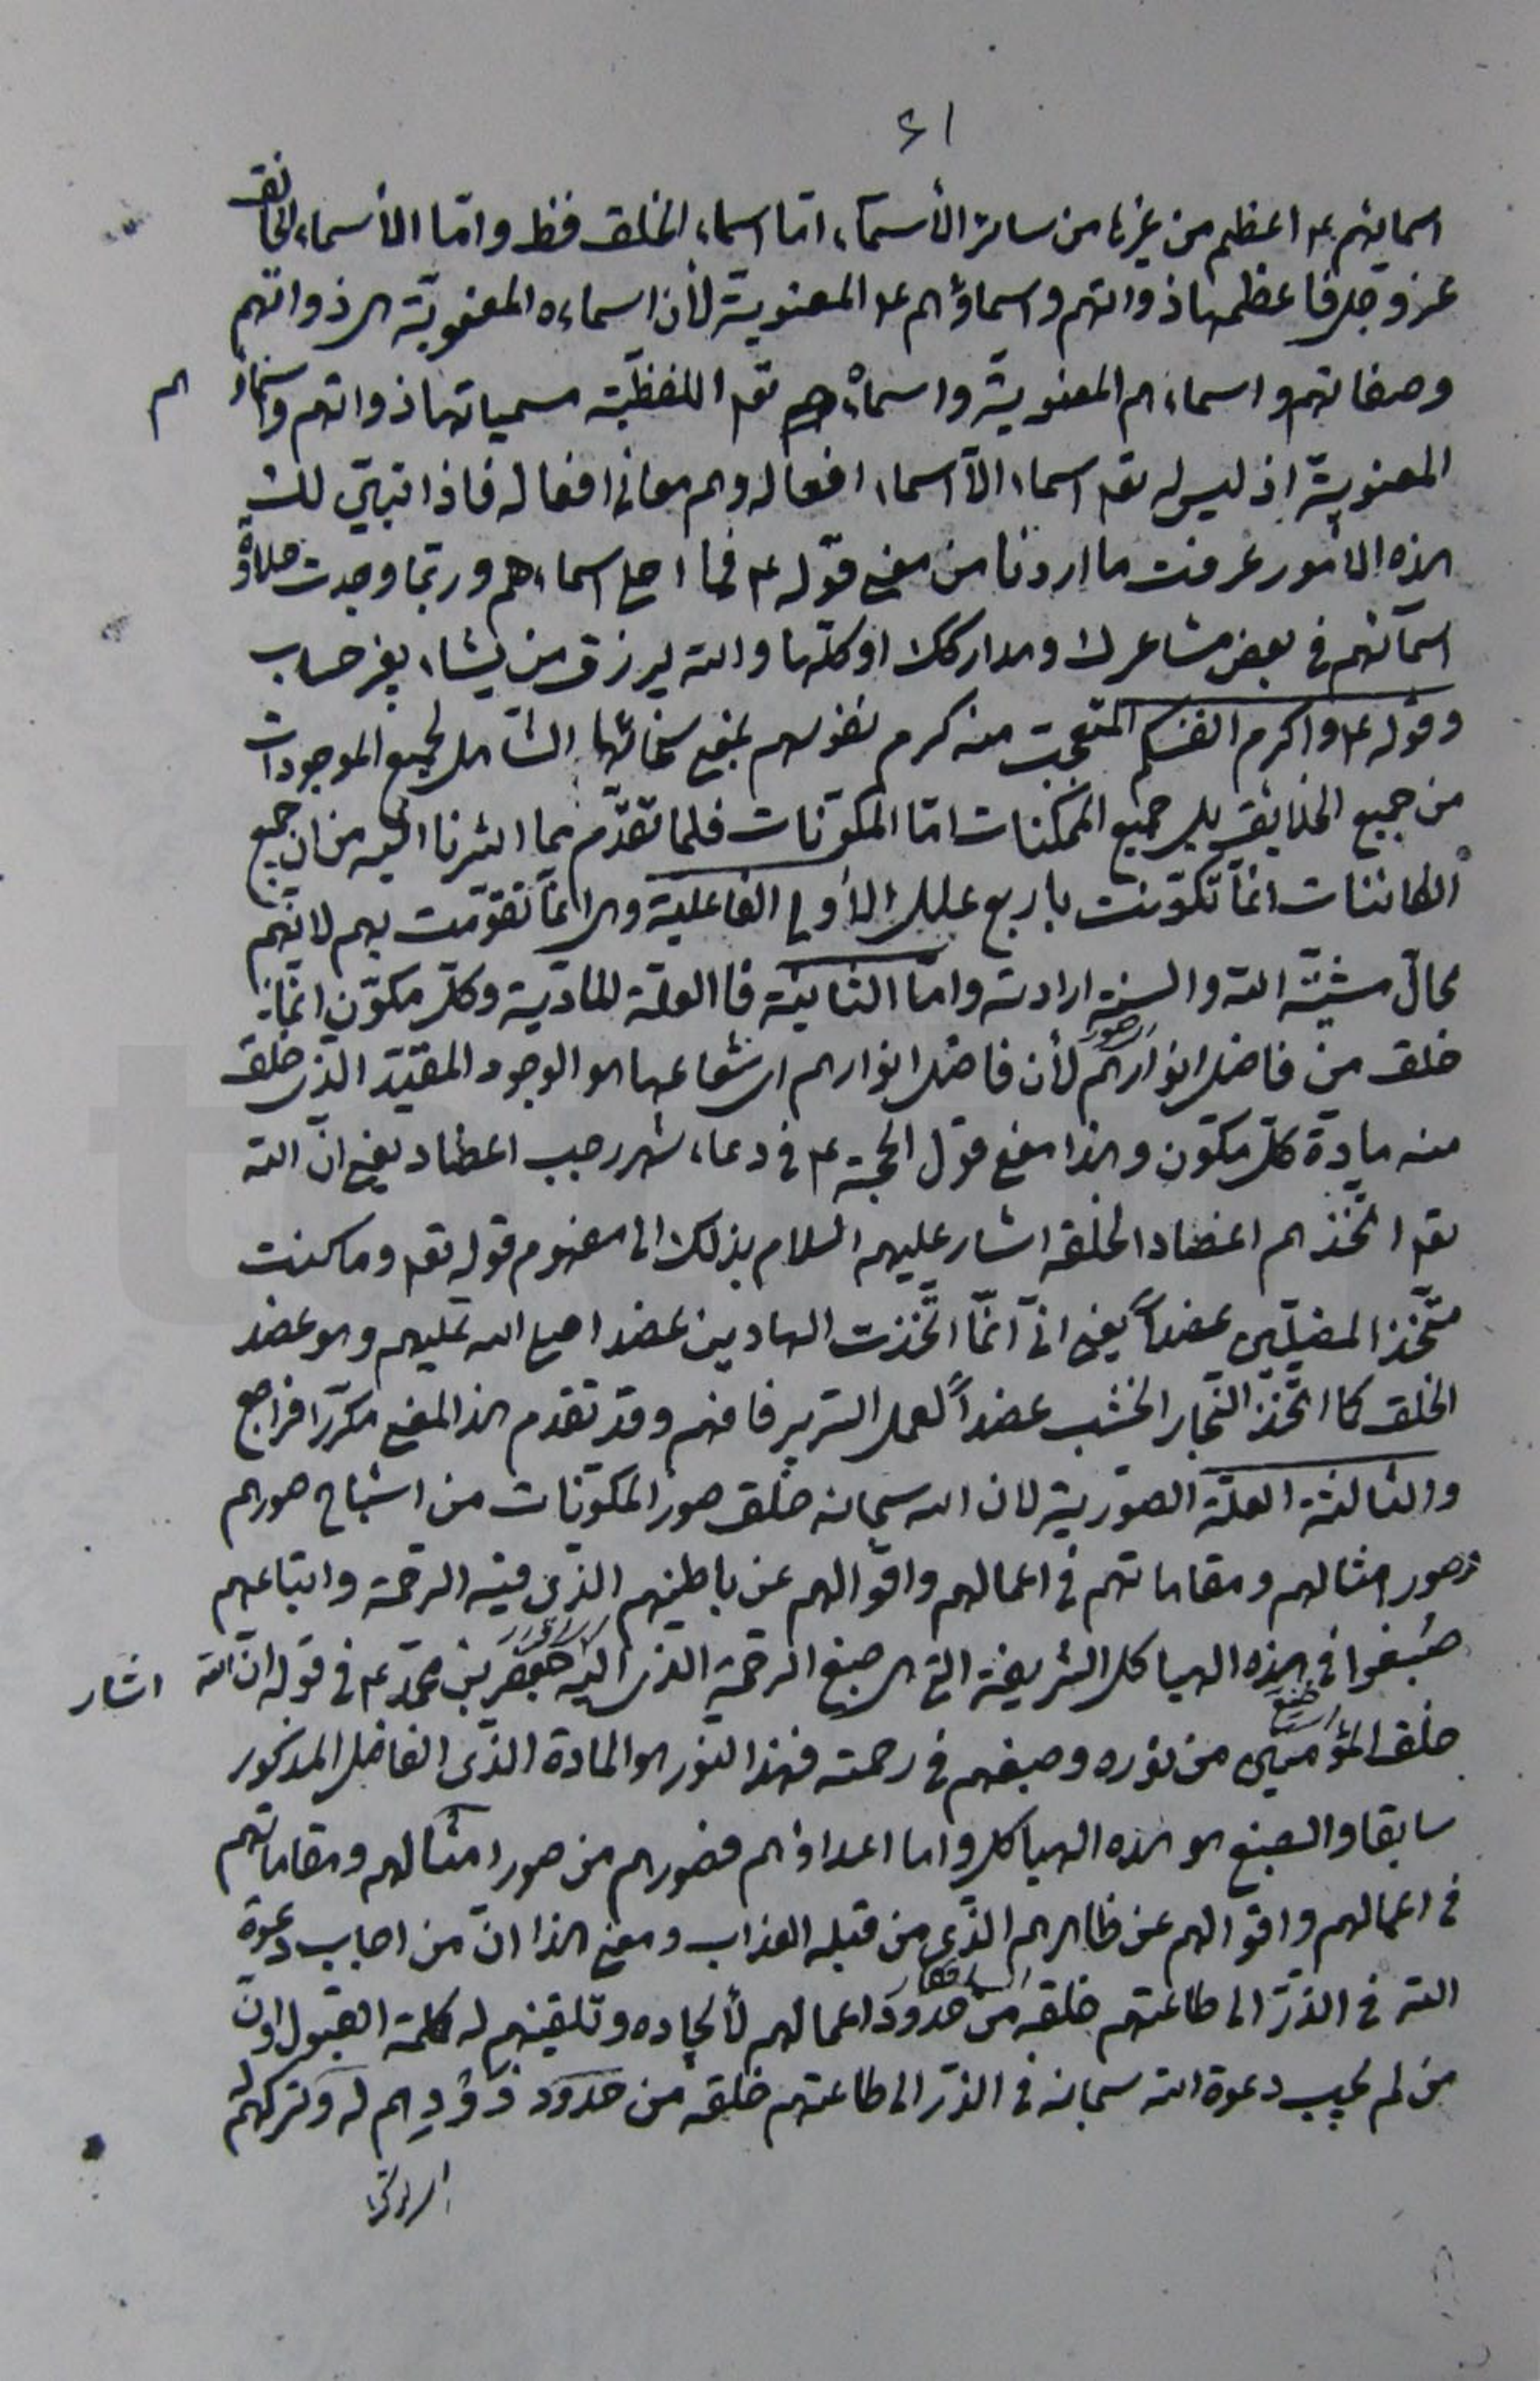 ٤١
اسمائهم ع اعظم من غيرها من سائر الأسمآء اما اسماء الخلق فظ واما الأسماء الخالق
عز وجل فاعظمها ذواتهم واسماؤهم ع المعنوية لأن اسماءه المعنوية هي ذواتهم
وصفاتهم واسماءهم المعنوية واسماؤه تعه اللفظية مسمياتها ذواتهم واسماؤهم
المعنوية اذ ليس له تعه اسماء الا اسماء افعاله وهم معانى افعاله فاذا تبين لك
هذه الامور عرفت ما اردنا من معنى قوله ع فما احلى اسماءهم وربما وجدت حلاوة
اسمآئهم فى بعض مشاعرك ومداركك او كلها والله يرزق من يشاء بغير حساب
وقوله ع واكرم انفسكم المتعجب منه كرم نفوسهم بمعنى سخائها الشامل لجميع الموجودات
من جميع الخلايق بل جميع الممكنات اما المكونات فلما تقدم مما اشرنا اليه من ان جميع
الكائنات انما تكونت باربع علل الأولى الفاعلية وهى انما تقومت بهم لانهم
محال مشية الله والسنة ارادته واما الثانية فا العلة المادية وكل مكون انما
خلق من فاضل انوارهم لأن فاضل انوارهم اى شعاعها هو الوجود المقيد الذى خلق
منه مادة كل مكون وهذا معنى قول الحجة ع فى دعاء شهر رجب اعضاد يعنى ان الله
تعه اتخذهم اعضادا لخلقه اشار عليهم السلام بذلك الى مفهوم قوله تعه وما كنت
متخذ المضلين عضداً يعنى انى انما اتخذت الهادين عضدا صلى الله عليهم وهو عضد
الخلق كما اتخذ النجار الخشب عضداً لعمل السرير فافهم وقد تقدم هذا المعنى مكررا فراجع
والثالثة العلة الصورية لان الله سبحانه خلق صور المكونات من اشباح صورهم
وصور امثالهم ومقاماتهم فى اعمالهم واقوالهم عن باطنهم الذى فيه الرحمة واتباعهم
صُبغوا فى هذه الهياكل الشريفة التى هى صبغ الرحمة الذى اشار اليه جعفر بن محمد ع فى قوله ان الله
خلق المؤمنين من نوره وصبغهم فى رحمته فهذا النور هو المادة الذى الفاضل المذكور
سابقا والصبغ هو هذه الهياكل واما اعداؤهم فصورهم من صور امثالهم ومقاماتهم
فى اعمالهم واقوالهم عن ظاهرهم الذى من قبله العذاب ومعنى هذا ان من اجاب دعوة
الله فى الذر الى طاعتهم خلقه من حدود اعمالهم لأيجاده وتلقينهم له كلمة القبول وان
من لم يجب دعوة الله سبحانه فى الذر الى طاعتهم خلقه من حدود ذودهم له وتركهم له